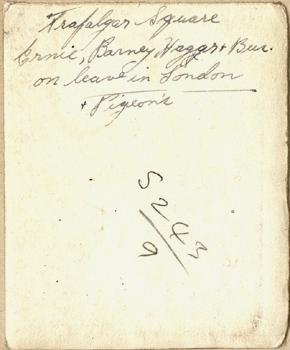 Trafalgar Square
Ernie, Barney, Haggar + Bur.
on leave in London
+ Pigeon's
5243/9